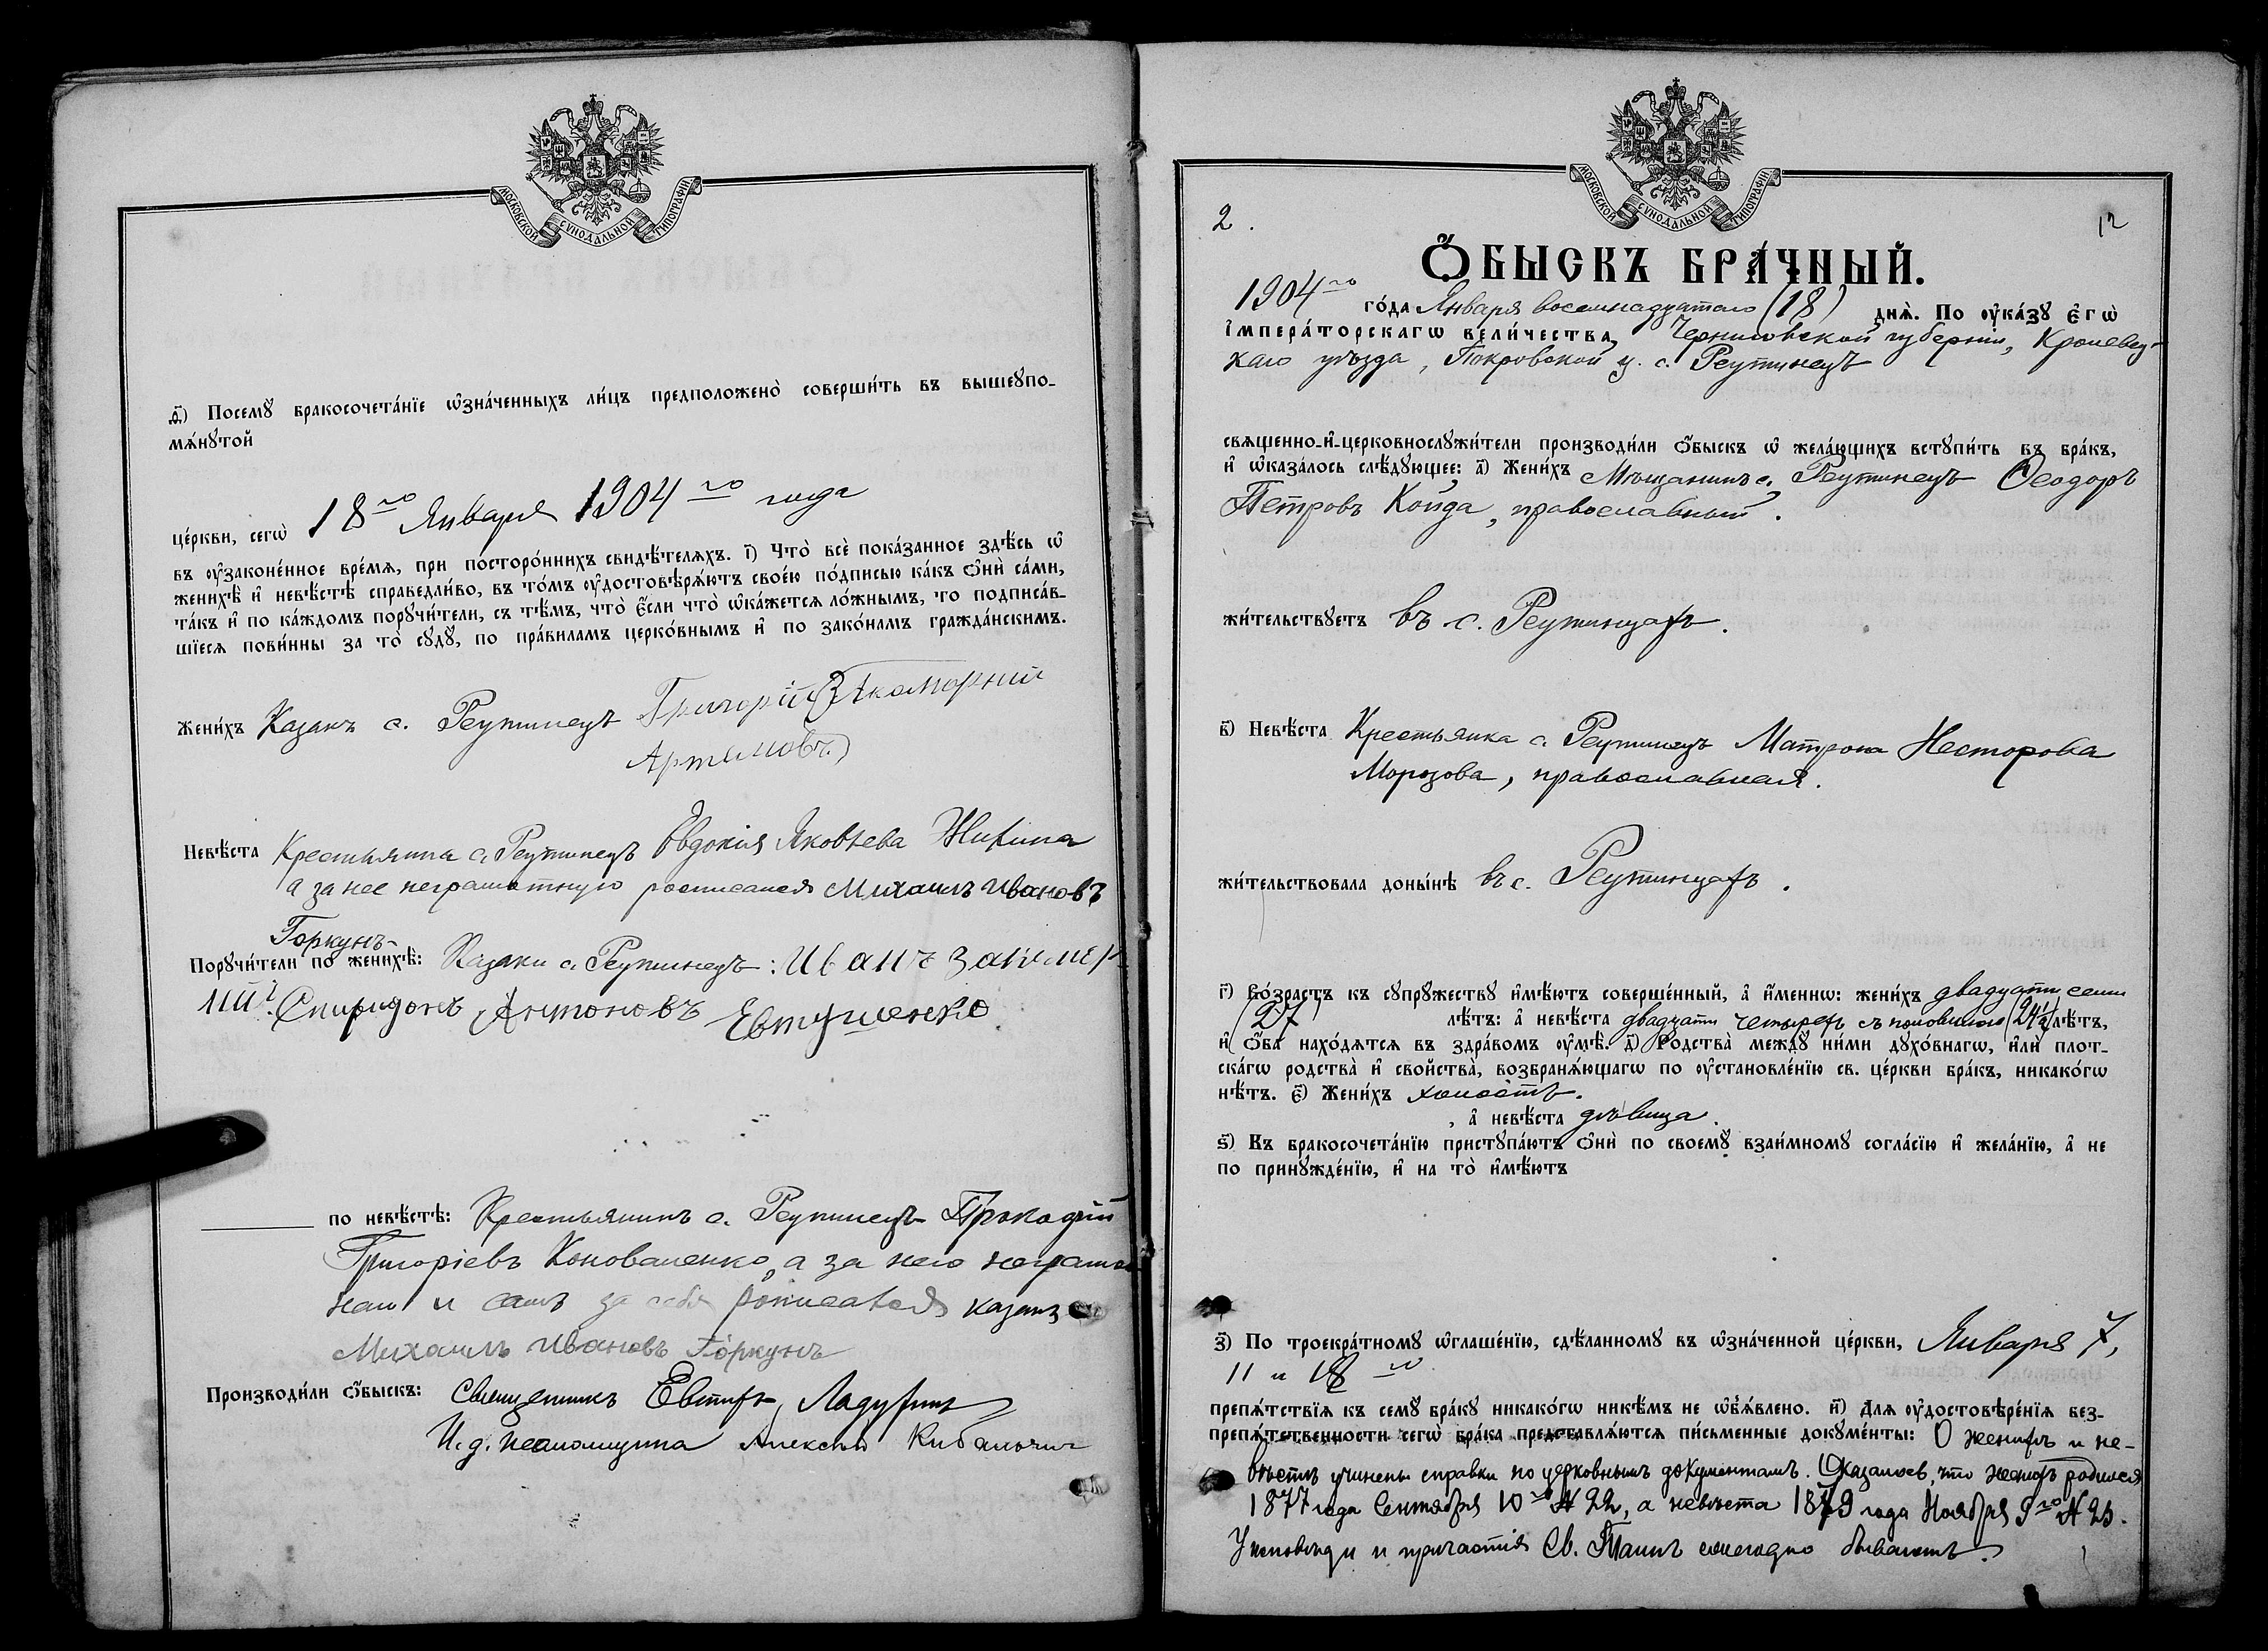 МОСКОВСКОЙ СѴНОДАЛЬНОЙ ТИПОГРАФІИ
д҃) Посемꙋ̀ бракосочета́нїе ѡ҆зна́ченныхъ ли́цъ предположено̀ соверши́ть въ вышеꙋпо-
мѧ́нꙋтой
це́ркви, сегѡ̀ 18го Января 1904го года
въ ᲂу҆зако́ненное вре́мѧ, при посторо́ннихъ свидѣ́телѧхъ. і҃) Что̀ всѐ пока́занное здѣ́сь ѡ҆
женихѣ̀ и҆ невѣ́стѣ справедли́во, въ то́мъ ᲂу҆достовѣрѧ́ютъ свое́ю по́дписью ка́къ ѻ҆нѝ са́ми,
та́къ и҆ по ка́ждомъ порꙋчи́тели, съ тѣ́мъ, что̀ є҆́сли что̀ ѡ҆ка́жетсѧ ло́жнымъ, то подписа́в-
шїесѧ пови́нны за то̀ сꙋдꙋ̀, по пра́виламъ церко́внымъ и҆ по зако́намъ гражда́нскимъ.
Жени́хъ Казакъ с. Реутинецъ Григорій Закоморний
Артемовъ
Невѣ́ста Крестьянка с. Реутинецъ Евдокія Яковлева
а за нее неграмотную росписался Михаилъ Ивановъ
Горкунъ
Порꙋчи́тели по женихѣ̀: Казаки с. Реутинецъ: Иванъ Закомор
ній Спиридонъ Антоновъ Евтушенко
по невѣ́стѣ: Крестьянинъ с. Реутинецъ Прокофій
Григоріевъ Коноваленко, а за него неграмот
наго и самъ за себя росписался казакъ
Михаилъ Ивановъ Горкунъ
Производи́ли ѻ҆́быскъ: Священникъ Евтихій
И. д. псаломщика Алексѣй Кибальчич
МОСКОВСКОЙ СѴНОДАЛЬНОЙ ТИПОГРАФІИ
2. 12
Ѻ҆́БЫСКЪ БРА́ЧНЫЙ.
1904го го́да Января восемнадцатаго (18) днѧ̀. По ᲂу҆ка́зꙋ Є҆гѡ̀
І҆мпера́торскагѡ вели́чества, Черниговской губерніи, Кролевец-
каго уѣзда, Покровской ц. с. Реутинецъ
свѧщенно-и҆-церковнослꙋжи́тели производи́ли ѻ҆́быскъ ѡ҆ жела́ющихъ встꙋпи́ть въ бра́къ,
и҆ ѡ҆каза́лось слѣ́дꙋющее; а҃) Жени́хъ Мѣщанинъ с. Реутинецъ Ѳеодоръ
Петровъ Койда, православный.
жи́тельствꙋетъ въ с. Реутинцахъ.
в҃) Невѣ́ста Крестьянка с. Реутинецъ Матрона Несторова
Морозова, православная.
жи́тельствовала доны́нѣ въ с. Реутинцахъ.
г҃) Во́зрастъ къ сꙋпрꙋжествꙋ и҆мѣ́ютъ соверше́нный, а҆ и҆́меннѡ: жени́хъ двадцати семи
(27) лѣ́тъ: а҆ невѣ́ста двадцати четырехъ съ половиною (24½) лѣ́тъ,
и҆ ѻ҆́ба нахо́дѧтсѧ въ здра́вомъ ᲂу҆мѣ̀. д҃) Родства̀ междꙋ̀ ни́ми дꙋхо́внагѡ, и҆лѝ плот-
ска́гѡ родства̀ и҆ сво́йства̀, возбранѧ́ющагѡ по ᲂу҆становле́нїю св. це́ркви бра́къ, никако́гѡ
нѣ́тъ. є҃) Жени́хъ холостъ.
, а҆ невѣ́ста дѣвица.
ѕ҃) Къ бракосочета́нїю пристꙋпа́ютъ ѻ҆нѝ по своемꙋ̀ взаи́мномꙋ согла́сїю и҆ жела́нїю, а҆ не
по принꙋжде́нїю, и҆ на то̀ и҆мѣ́ютъ
з҃) По троекра́тномꙋ ѡ҆глаше́нїю, сдѣ́ланномꙋ въ ѡ҆зна́ченной це́ркви, Января 7,
11 и 18го
препѧ́тствїѧ къ семꙋ̀ бра́кꙋ никако́гѡ никѣ́мъ не ѡ҆б̾ѧ́влено. и҃) Для ᲂу҆достовѣре́нїѧ без-
препѧ́тственности сегѡ̀ бра́ка представлѧ́ютсѧ пи́сьменные докꙋме́нты: О женихѣ и не-
вѣстѣ учинены справки по церковнымъ документамъ. Оказалось, что женихъ родился
1877 года Сентября 10го № 22, а невѣста 1879 года Ноября 9го № 25.
У исповѣди и причастія Св. Таинъ ежегодно бываютъ.